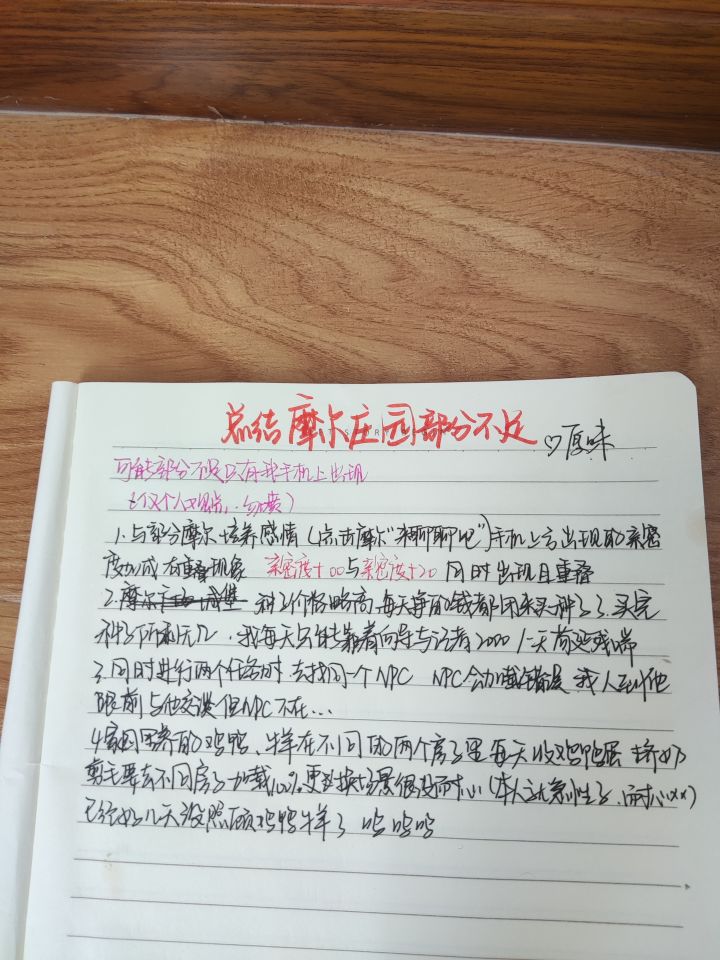 总结摩尔庄园部分不足
♡原味
可能部分不足只有我手机上出现
(仅个人观点,勿喷)
1.与部分摩尔培养感情(点击摩尔"来聊聊吧")手机上方出现的亲密
度加成有重叠现象 亲密度+00与亲密度+20同时出现且重叠
2.摩尔 种子价格略高,每天挣的钱都用来买种子了.买完
种子所剩无几.我每天只能靠着向导与记者2000/一天苟延残喘
3.同时进行两个任务时.去找同一个NPC NPC会加载错误 我人到他
眼前与他交谈但NPC不在...
4.家园里养的鸡鸭、牛羊在不同的两个房子里每天收鸡鸭蛋 挤奶
剪毛要去不同房子加载100%更换场景很没耐心(本人太急性子.耐心xx)
已经好几天没照顾鸡鸭牛羊了 呜呜呜